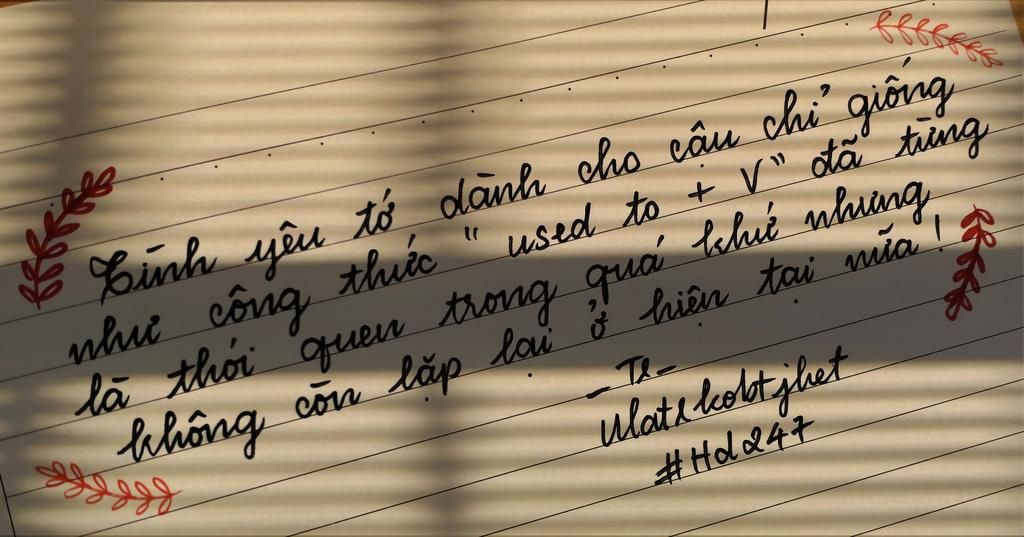 Tình yêu tớ dành cho cậu chỉ giống
như công thức " used to + V" đã từng
là thói quen trong quá khứ nhưng
không còn lặp lại ở hiện tại nữa!
#Hd247